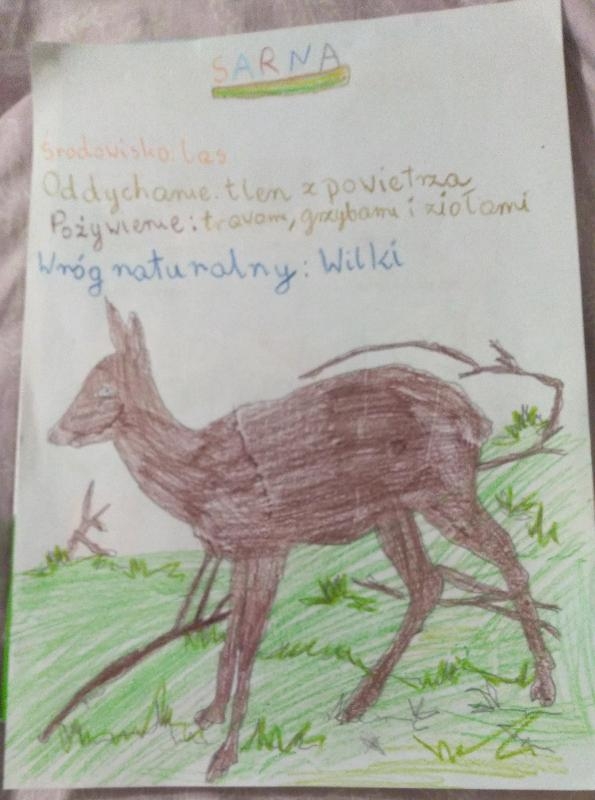 SARNA
Środowisko: las
Oddychanie: tlen z powietrza
Pożywienie: trawam, grzybami i ziołami
Wróg naturalny: Wilki